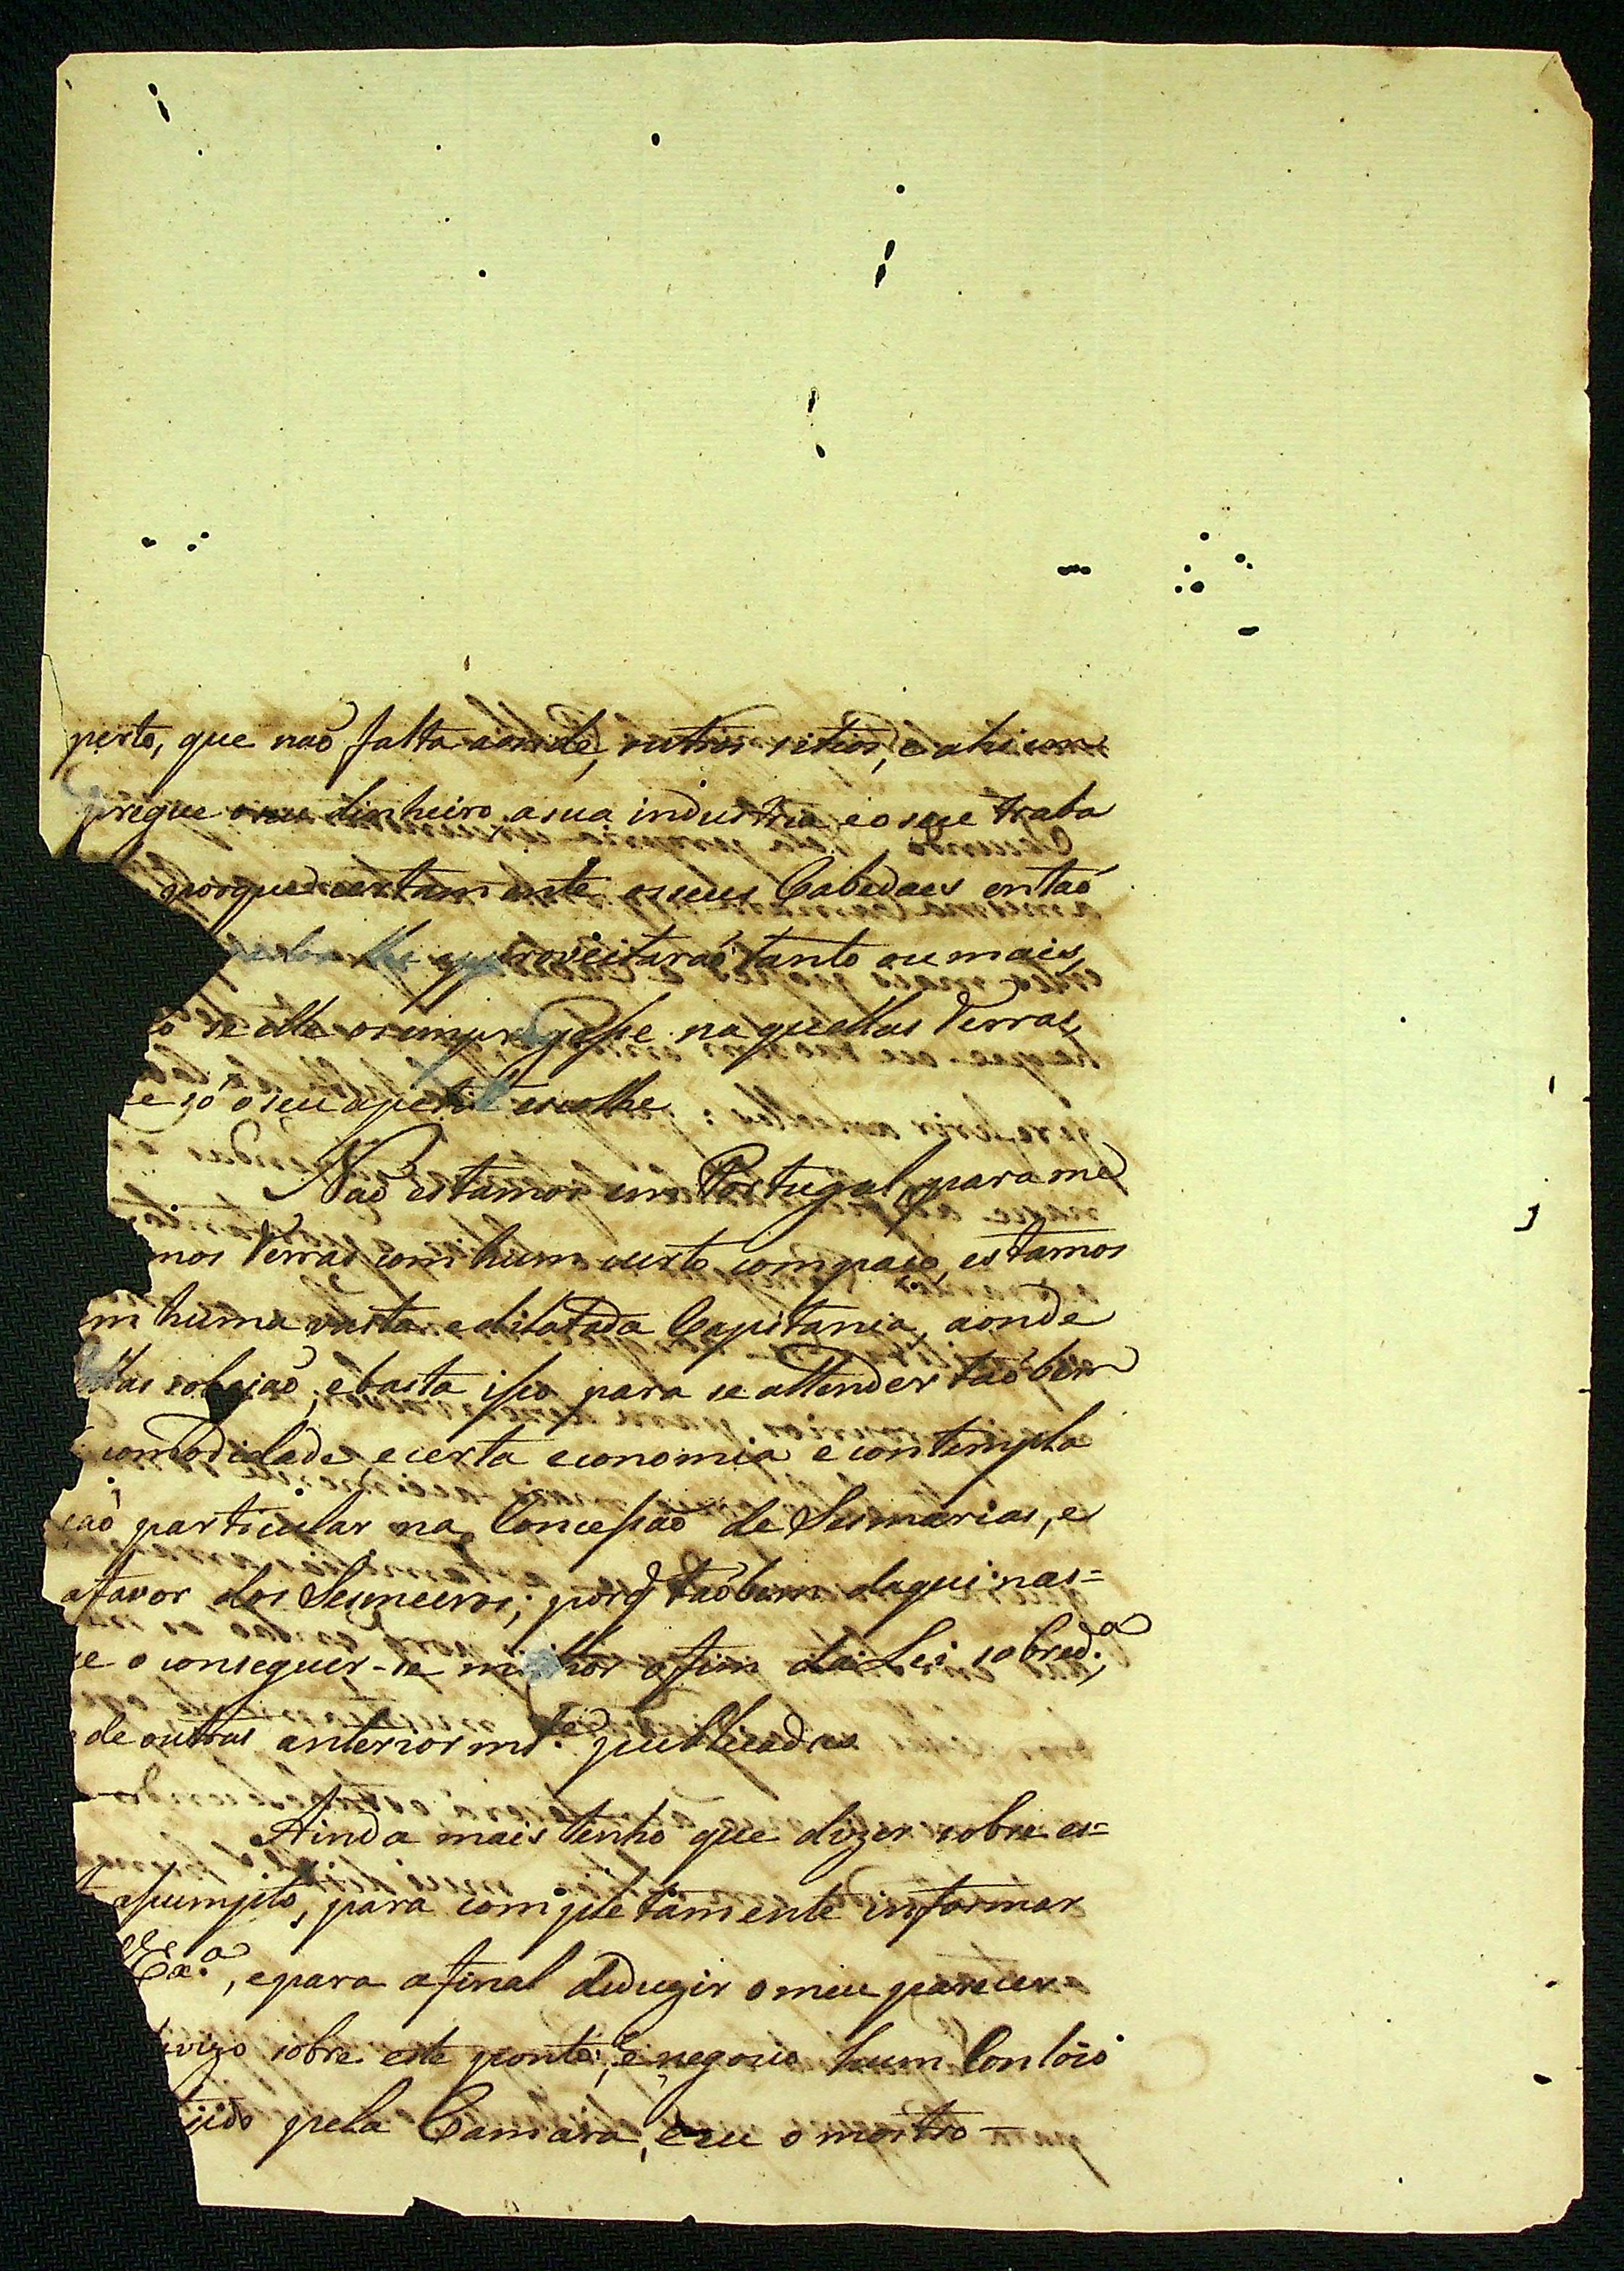 perto, que naõ falta aonde, outros sitios, e ahi em
pregue o seu dinheiro, a sua industria, e o seu traba
porque certamente os seus Cabedaes entaõ
lhe aproveitaraõ tanto ou mais,
se elle os empregasse naquellas Terras,
e só o seu apetite escolhe
Naõ estamos em Portugal, para me
mos Terras com hum curto compaço, estamos
em huma vasta e dilatada Capitania, aonde
ellas sobejaõ, e basta isso para se attender taõbem
comodidade, e certa economia e contempla
çaõ particular na Concessaõ de Sesmarias, e
a favor dos Sesmeiros; porq̃ taõbem daqui nas=
se o conseguir-se milhor o fim da Lei sobred.ª,
e de outras anteriorm.te publicadas
Ainda mais tenho que dizer sobre es=
te assumpto, para completamente informar
Ex.ª, e para afinal deduzir o meu parecer
sobre este ponto; e negocio hum Conloio
tido pela Camara, e eu o mostro